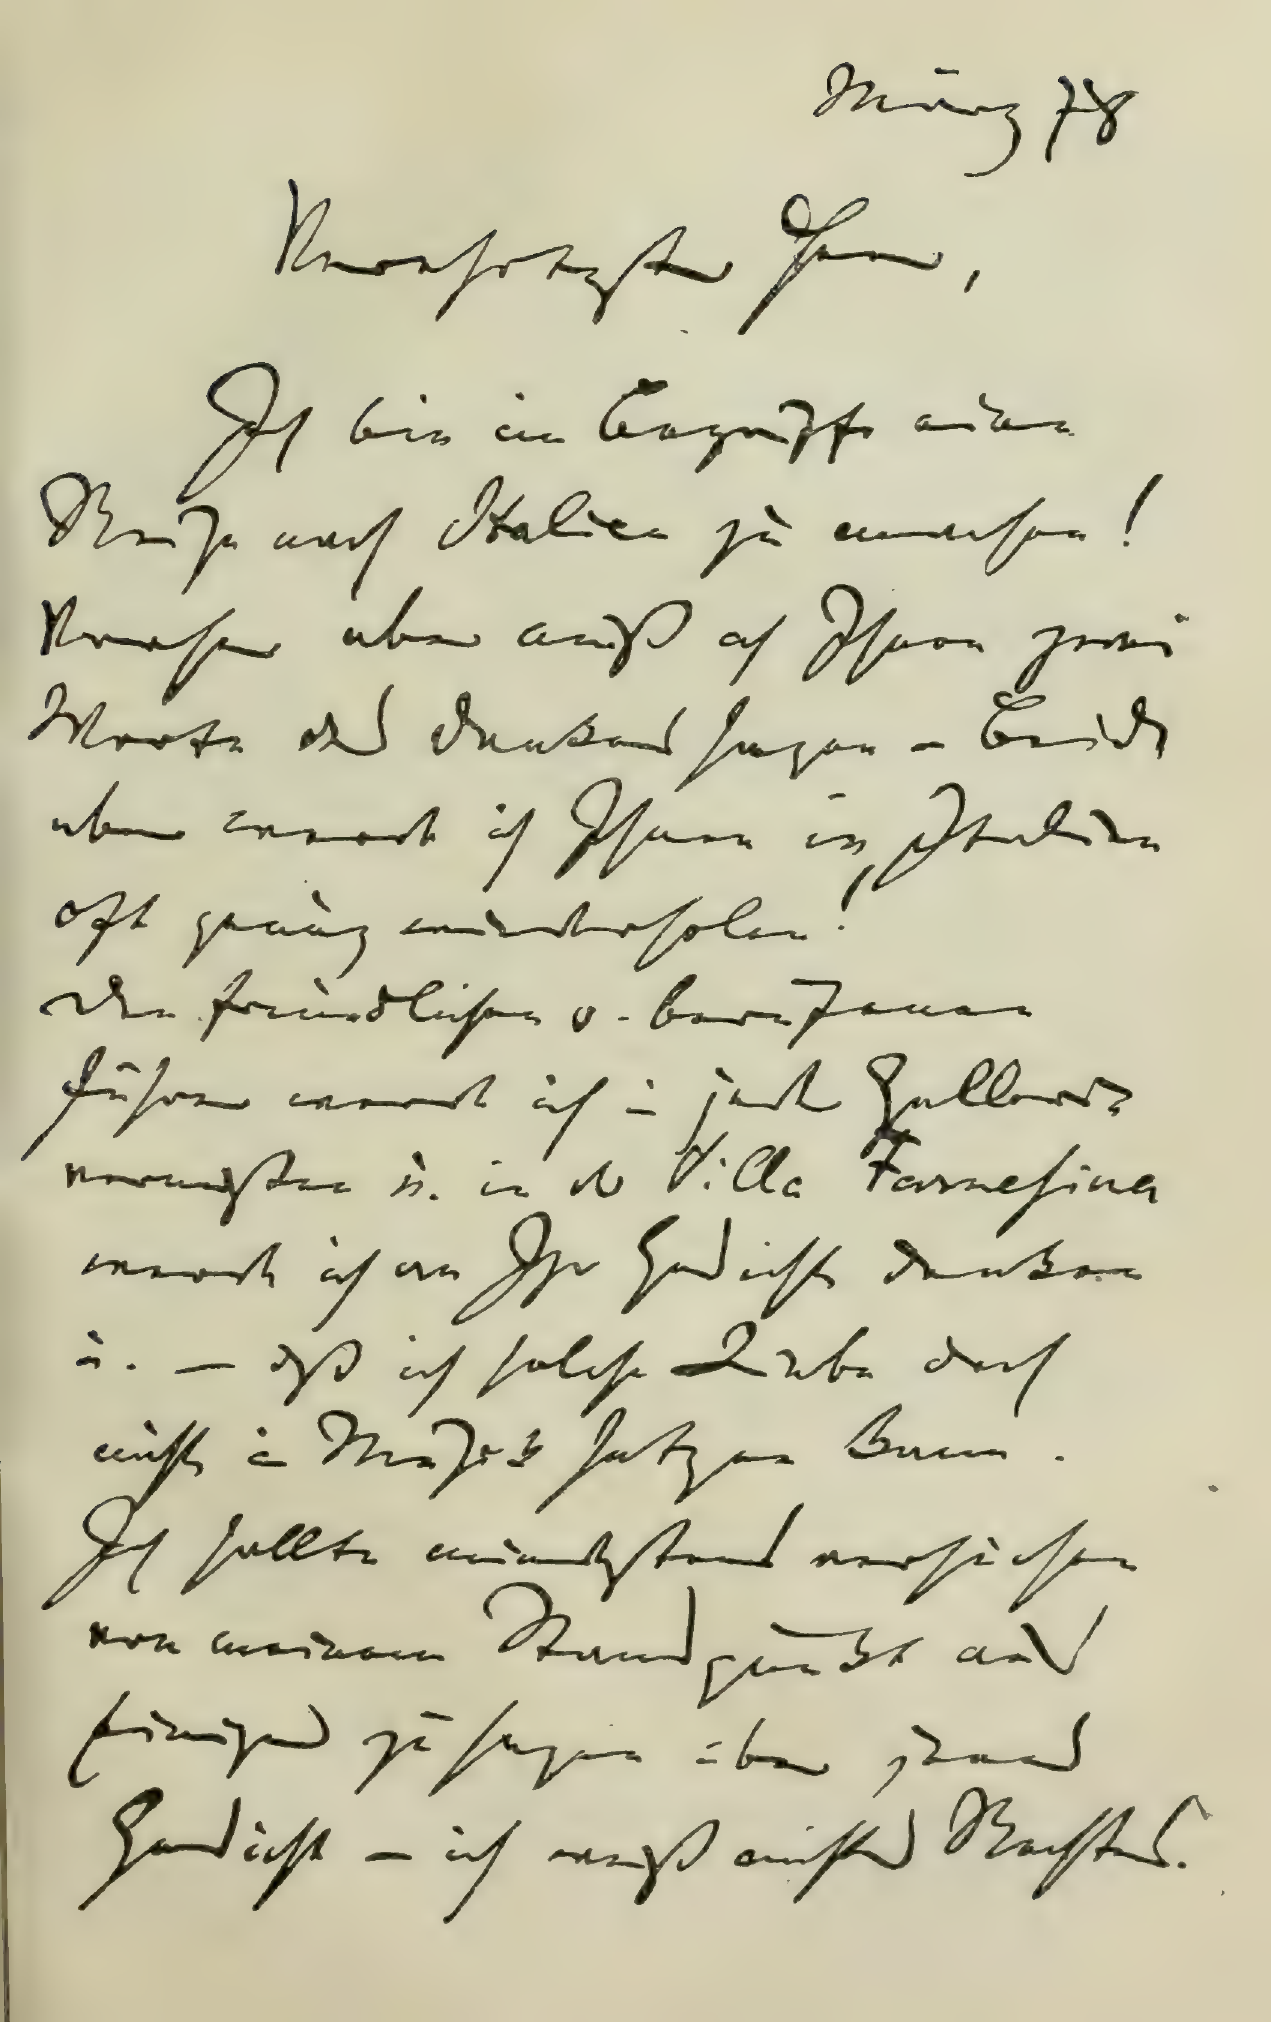 März 78
Verehrtester Herr,
Ich bin im Begriffe eine
Reise nach Italien zu machen!
Vorher aber muß ich Ihnen zwei
Worte des Dankes sagen – Beide
aber werde ich Ihnen in Italien
oft genug wiederholen!
Den freundlichen u. bewußten
Führer werde ich in jeder Gallerie
vermissen u. in der Villa Farnesina
werde ich an Ihr Gedicht denken
u. – daß ich solche Liebe doch
nicht in Musik setzen kann.
Ich sollte mindestens versuchen
von meinem Standpunkt aus
Einiges zu sagen über jenes
Gedicht – ich weiß nichts Rechtes.